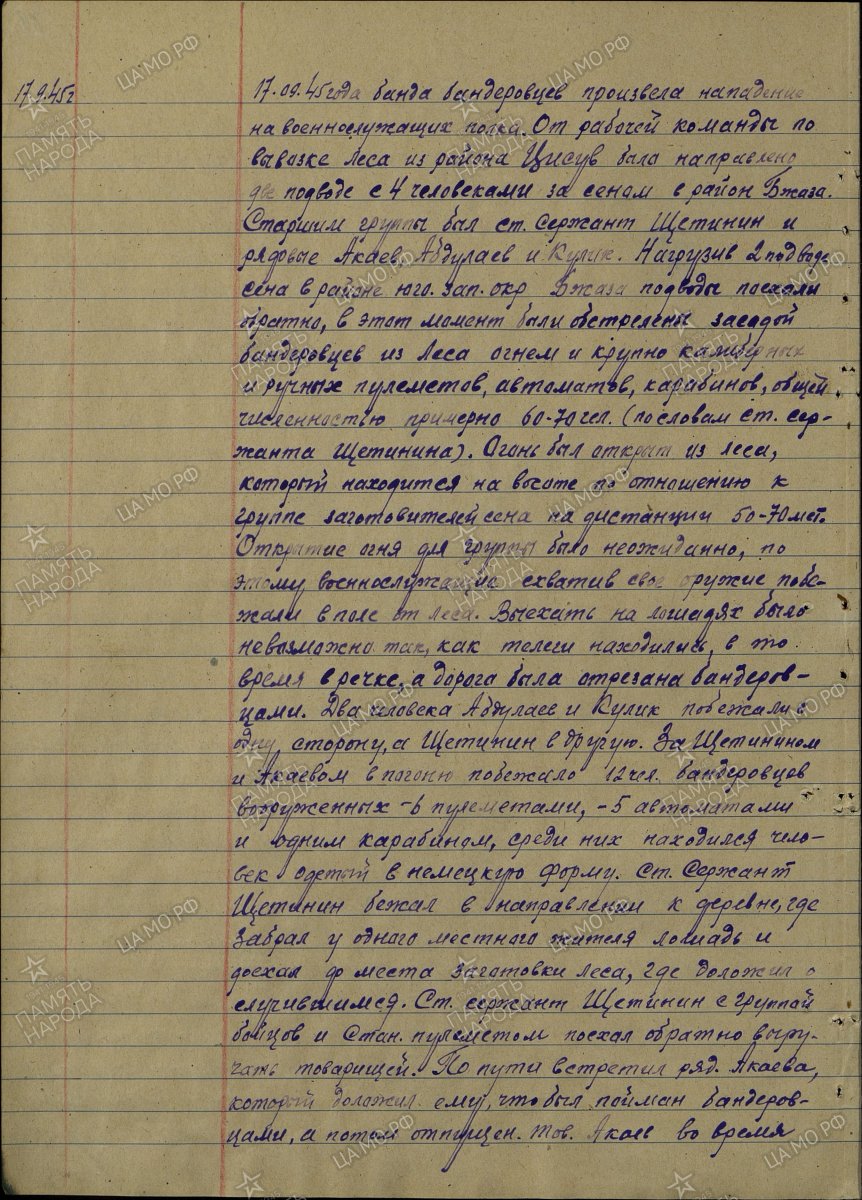 17.9.45г
17.09.45года банда бандеровцев произвела нападение
на военнослужащих полка. От рабочей команды по
вывозке леса из района Цисув было направлено
две подводе с 4 человеками за сеном в район Бжаза.
Старшим группы был ст. сержант Щетинин и
рядовые Акаев, Абдулаев и Кулик. Нагрузив 2 подводы
сена в районе юго. зап. окр Бжаза подводы поехали
обратно, в этот момент были обстрелены засадой
бандеровцев из леса огнем и крупно калиберных
и ручных пулеметов, автоматов, карабинов, общей
численностью примерно 60-70 чел. (по словам ст. сер-
жанта Щетинина). Огонь был открыт из леса,
который находится на высоте по отношению к
группе заготовителей сена на дистанции 50-70 мет.
Открытие огня для группы было неожиданно, по
этому военнослужащие схватив свое оружие побе-
жали в поле от леса. Выехать на лошадях было
невозможно так, как телеги находились, в то
время в речке, а дорога была отрезана бандеров-
цами. Два человека Абдулаев и Кулик побежали в
одну сторону, а Щетинин в другую. За Щетинином
и Акаевом в погоню побежало 12 чел. бандеровцев
вооруженных -6 пулеметами, -5 автоматами
и одним карабином, среди них находился чело-
век одетый в немецкую форму. Ст. Сержант
Щетинин бежал в направлении к деревне, где
забрал у одного местного жителя лошадь и
доехал до места заготовки леса, где доложил о
случившимся. Ст. сержант Щетинин с группой
бойцов и стан. пулеметом поехал обратно выру-
чать товарищей. По пути встретил ряд. Акаева,
который доложил ему, что был пойман бандеров-
цами, а потом отпущен. Тов. Акаев во время
ЦАМО.РФ
ПАМЯТЬ НАРОДА